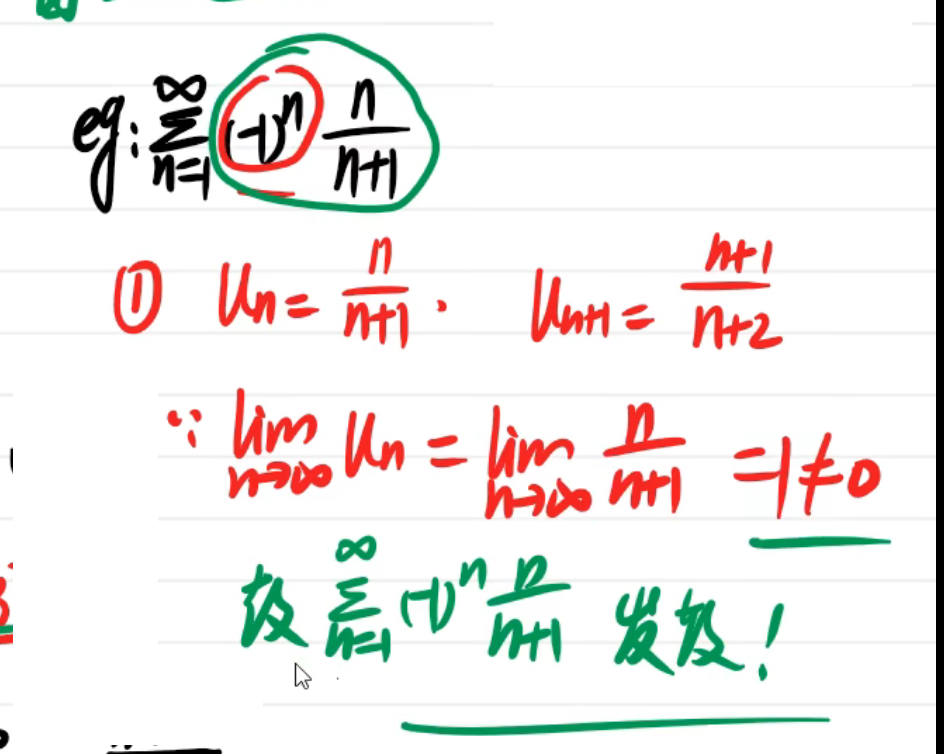 eg: ∑_{n=1}^{∞} (-1)^n n/(n+1)
① Un = n/(n+1) . Un+1 = (n+1)/(n+2)
∵ lim_{n→∞} Un = lim_{n→∞} n/(n+1) = 1 ≠ 0
故 ∑_{n=1}^{∞} (-1)^n n/(n+1) 发散!